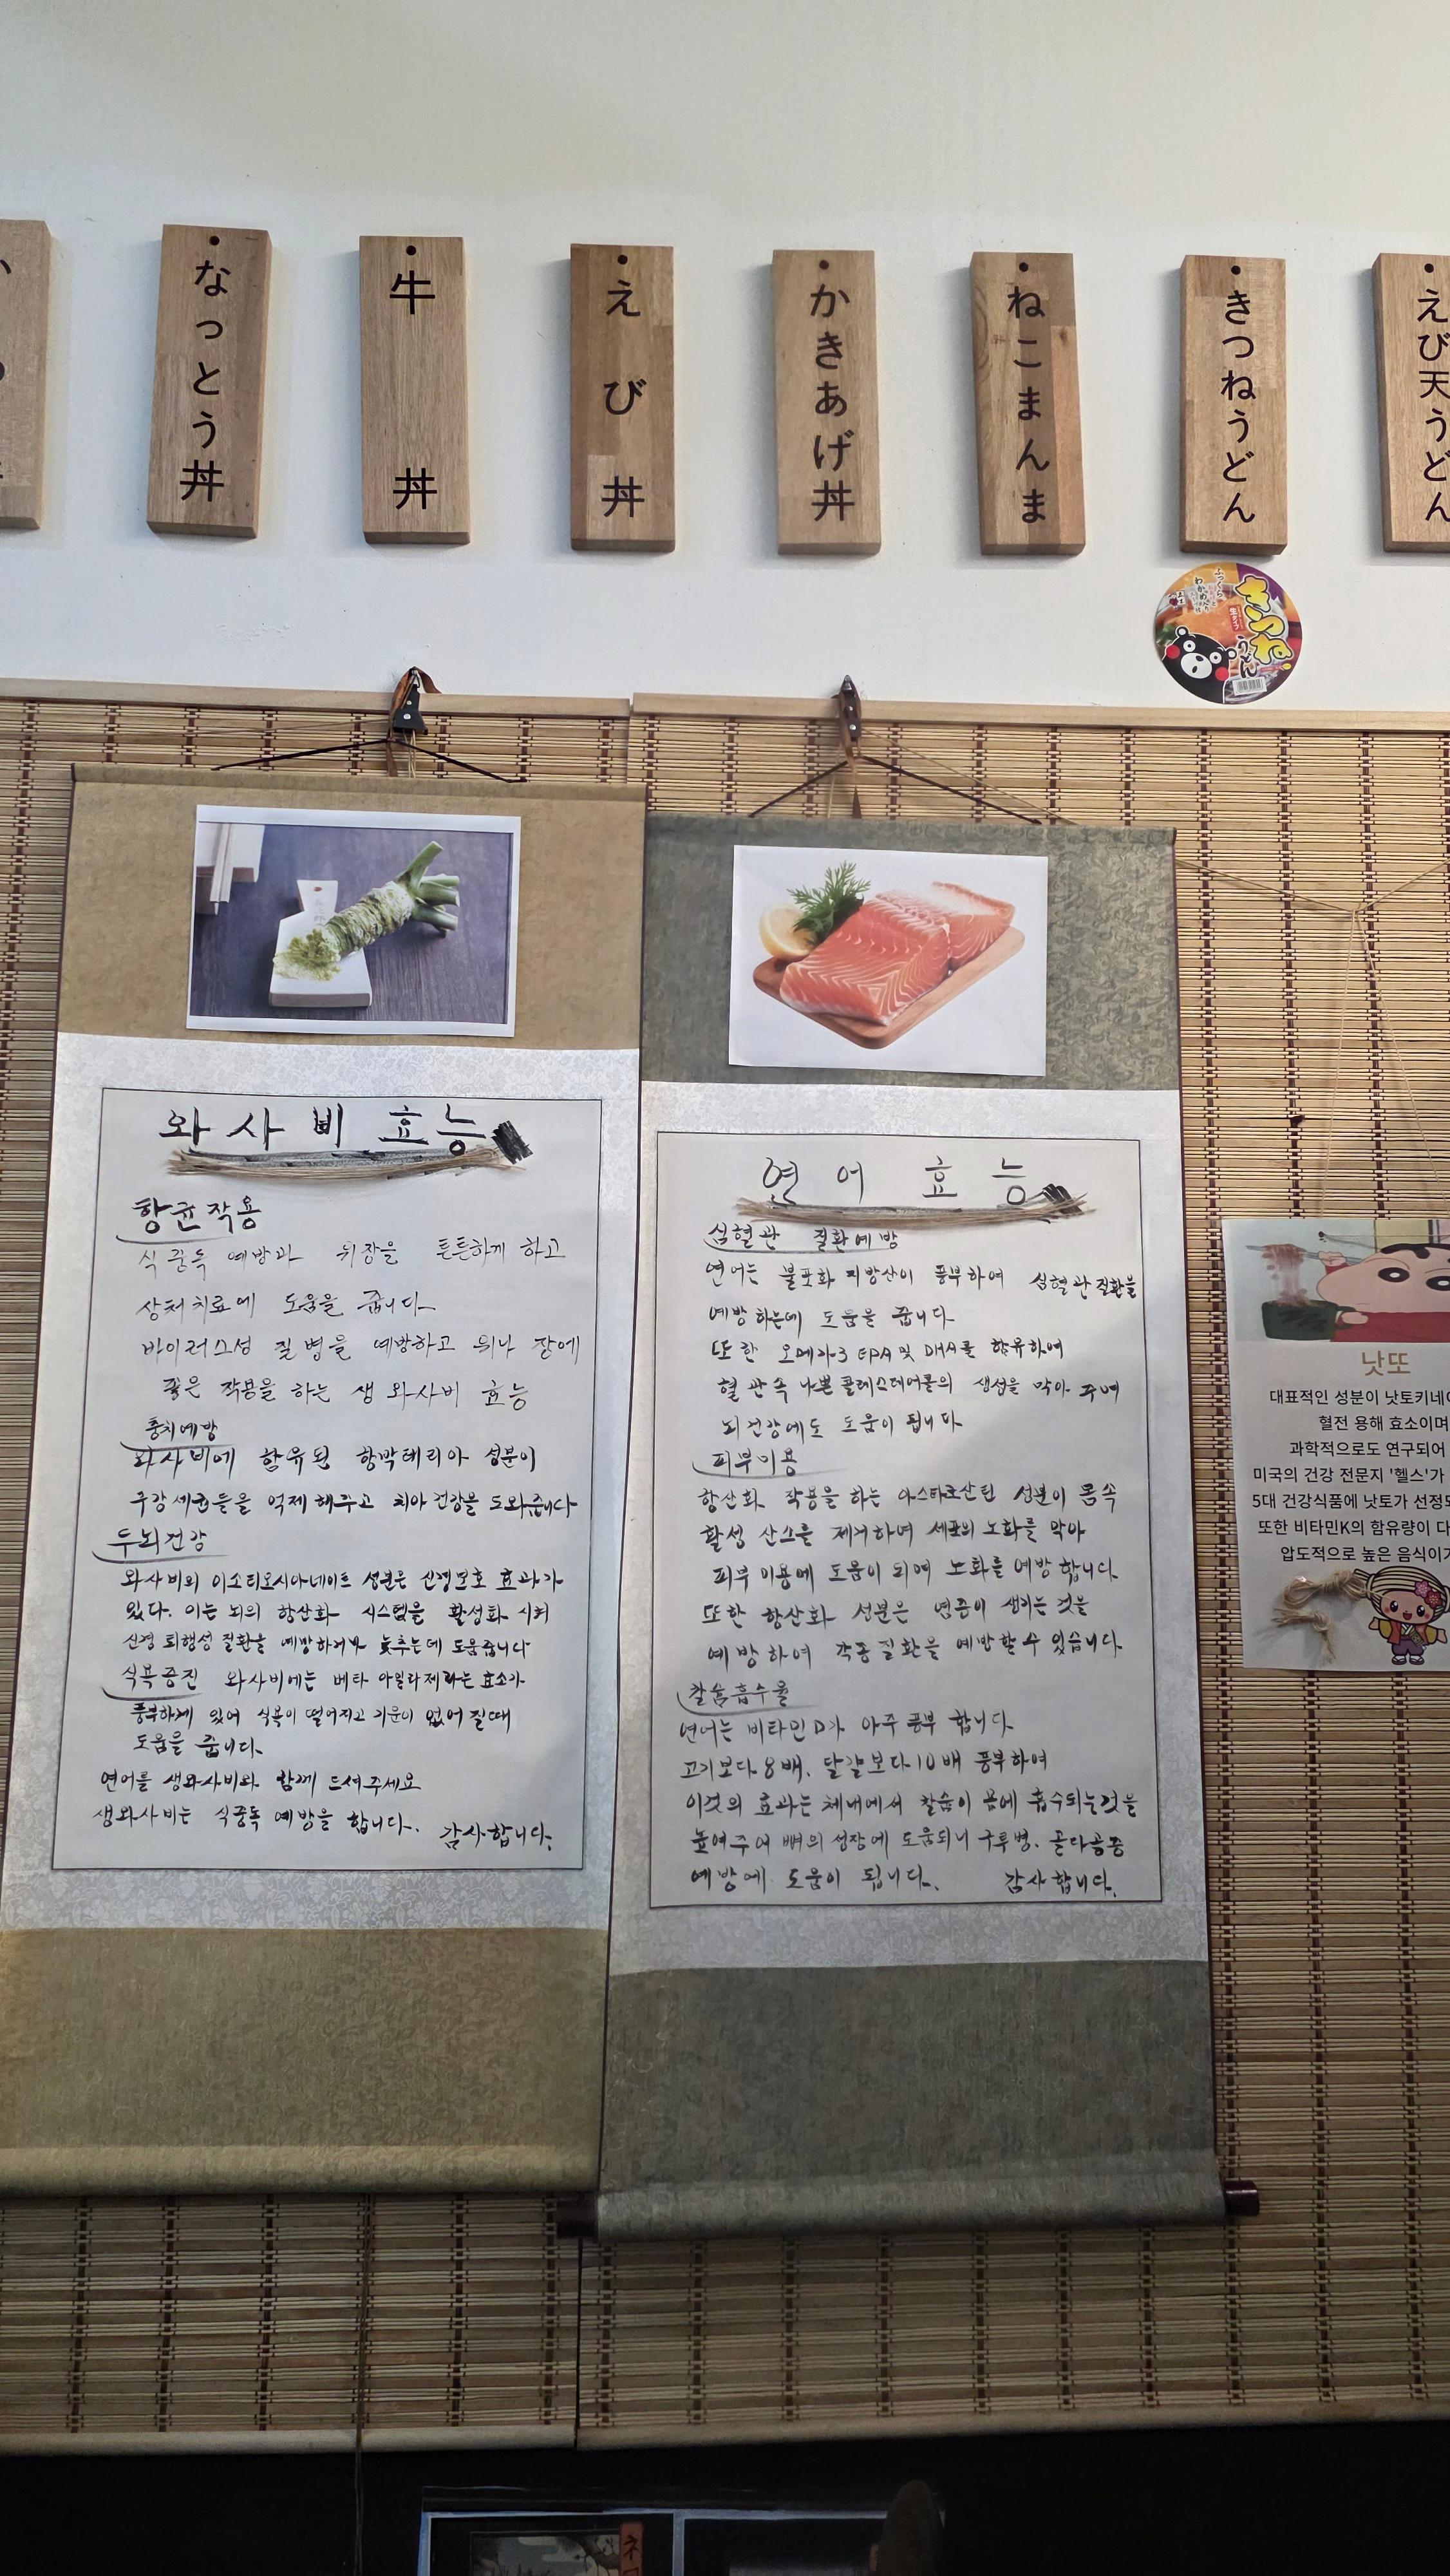 なっとう丼
牛丼
えび丼
かきあげ丼
ねこまんま
きつねうどん
えび天うどん
きつね
うどん
와사비 효능
항균작용
식중독 예방과 위장을 튼튼하게 하고
상처치료에 도움을 줍니다
바이러스성 질병을 예방하고 위나 장에
좋은 작용을 하는 생 와사비 효능
충치예방
와사비에 함유된 항박테리아 성분이
구강세균들을 억제해주고 치아 건강을 도와줍니다
두뇌건강
와사비의 이소티오시아네이트 성분은 신경보호 효과가
있다. 이는 뇌의 항산화 시스템을 활성화 시켜
신경 퇴행성 질환을 예방하거나 늦추는데 도움줍니다
식복증진 와사비에는 베타 아밀라제라는 효소가
풍부하게 있어 식복이 떨어지고 기운이 없어질때
도움을 줍니다.
연어를 생와사비와 함께 드셔주세요
생와사비는 식중독 예방을 합니다.
감사합니다.
연어 효능
심혈관 질환예방
연어는 불포화 지방산이 풍부하여 심혈관질환을
예방하는데 도움을 줍니다.
또한 오메가3 EPA 및 DHA를 함유하여
혈관속 나쁜 콜레스테어롤의 생성을 막아 주며
뇌건강에도 도움이 됩니다.
피부미용
항산화 작용을 하는 아스타크산틴 성분이 몸속
활성 산소를 제거하며 세포의 노화를 막아
피부 미용에 도움이 되며 노화를 예방합니다.
또한 항산화 성분은 염증이 생기는 것을
예방하여 각종질환을 예방할수 있습니다.
칼슘흡수율
연어는 비타민D가 아주 풍부 합니다.
고기보다 8배, 달걀보다 10배 풍부하여
이것의 효과는 체내에서 칼슘이 몸에 흡수되는것을
높여주어 뼈의 성장에 도움되니 구루병, 골다공증
예방에 도움이 됩니다.
감사합니다.
낫또
대표적인 성분이 낫토키네
혈전 용해 효소이며
과학적으로도 연구되어
미국의 건강 전문지 '헬스'가
5대 건강식품에 낫토가 선정
또한 비타민K의 함유량이 다
압도적으로 높은 음식이